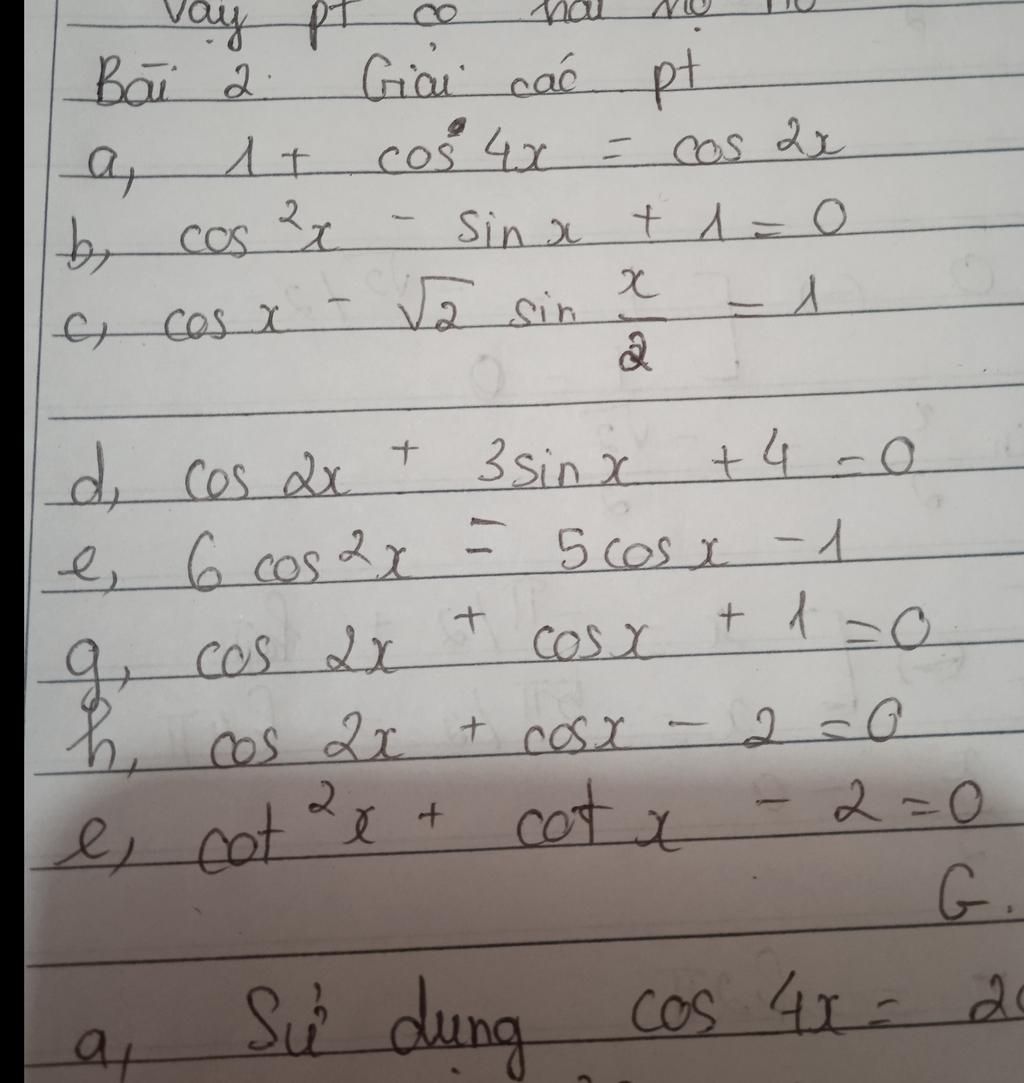 Vậy pt có hai
Bài 2: Giải các pt
a, 1 + cos 4x = cos 2x
b, cos²x - sin x + 1 = 0
c, cos x - √2 sin x/2 = 1
d, cos 2x + 3 sin x + 4 = 0
e, 6 cos²x = 5 cos x - 1
g, cos 2x + cos x + 1 = 0
h, cos 2x + cos x - 2 = 0
e, cot²x + cot x - 2 = 0
G.
a, Sử dụng cos 4x = 2